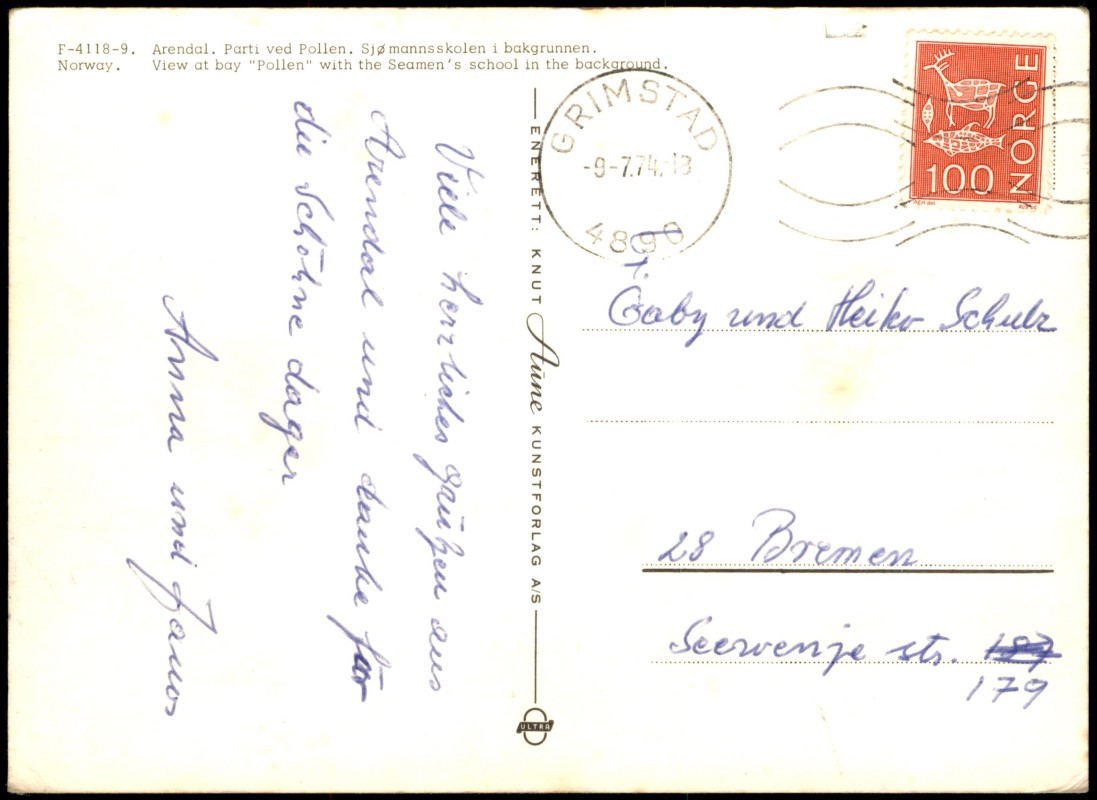 F-4118-9. Arendal. Parti ved Pollen. Sjømannsskolen i bakgrunnen.
Norway. View at bay "Pollen" with the Seamen's school in the background.
Viele herzliches gaußen aus
Arendal und danke før
die schöhne dager
Anna und Janos
ENERETT: KNUT Aune KUNSTFORLAG A/S
ULTRA
GRIMSTAD
-9-7.74.-13
4890
NORGE
100
Gaby und Heiko Schulz
28 Bremen
Seewenje str. 187
179